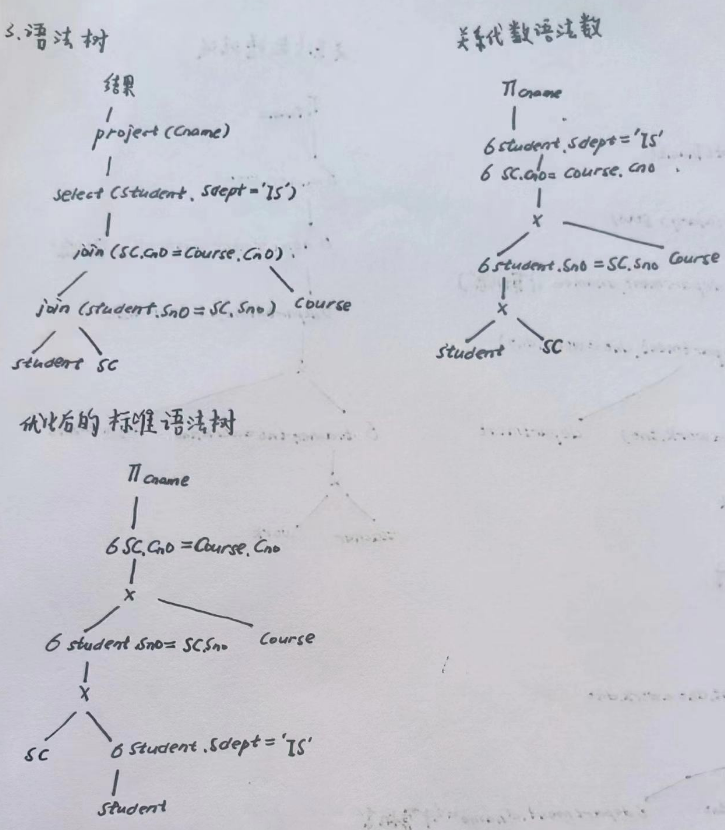 5.语法树
结果
project(Cname)
select(Student.Sdept='IS')
join(SC.Cno=Course.Cno)
join(Student.Sno=SC.Sno) Course
Student SC
关系代数语法数
Π Cname
6 Student.Sdept='IS'
6 SC.Cno=Course.Cno
×
6 Student.Sno=SC.Sno Course
×
Student SC
优化后的标准语法树
Π Cname
6 SC.Cno=Course.Cno
×
6 Student.Sno=SC.Sno Course
×
SC 6 Student.Sdept='IS'
Student